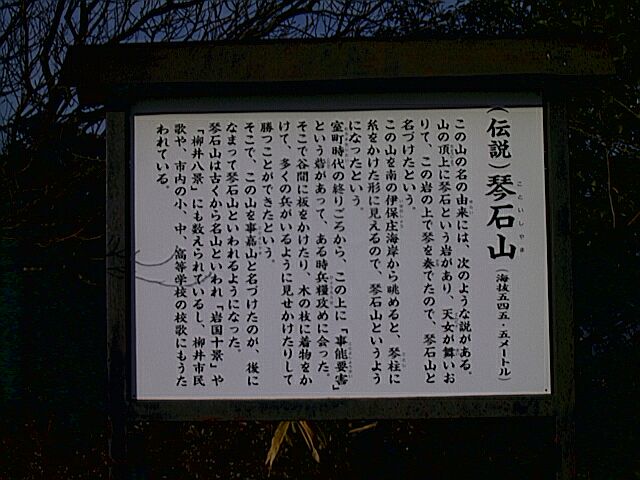 （伝説）琴石山（海抜五四五・五メートル）
こといしやま
この山の名の由来には、次のような説がある。
山の頂上に琴石という岩があり、天女が舞いお
りて、この岩の上で琴を奏でたので、琴石山と
名づけたという。
この山を南の伊保庄海岸から眺めると、琴柱に
糸をかけた形に見えるので、琴石山というよう
になったという。
室町時代の終りごろから、この上に「事能要害」
という砦があって、ある時兵糧攻めに会った。
そこで谷間に板をかけたり、木の枝に着物をか
けて、多くの兵がいるように見せかけたりして
勝つことができたという。
そこで、この山を事嘉山と名づけたのが、後に
なまって琴石山といわれるようになった。
琴石山は古くから名山といわれ「岩国十景」や
「柳井八景」にも数えられているし、柳井市民
歌や、市内の小、中、高等学校の校歌にもうた
われている。